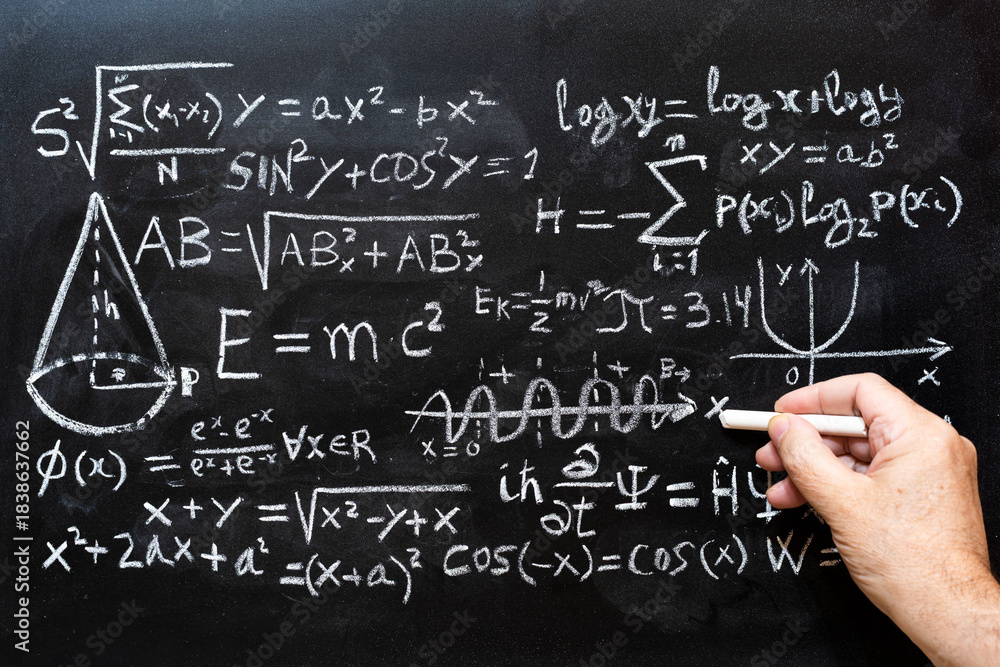 S² √ N Σ i=1 (x₁-x₂) / N
y = ax² - bx²
SIN²y + COS²y = 1
log xy = log x + log y
xy = ab²
H = - n Σ i=1 P(xᵢ) Log₂ P(xᵢ)
AB = √ABx² + ABx²
h
P
E = mc²
Eₖ = 1/2 mv²
π = 3.14
y
x
0
+ + B→
x = 0
x
ϕ(x) = e^x - e^-x / e^x + e^-x ∀x∈R
iħ ∂/∂t Ψ = Ĥ Ψ
x + y = √x² - y + x
x² + 2ax + a² = (x + a)²
cos(-x) = cos(x)
W =
Adobe Stock | #1838637662